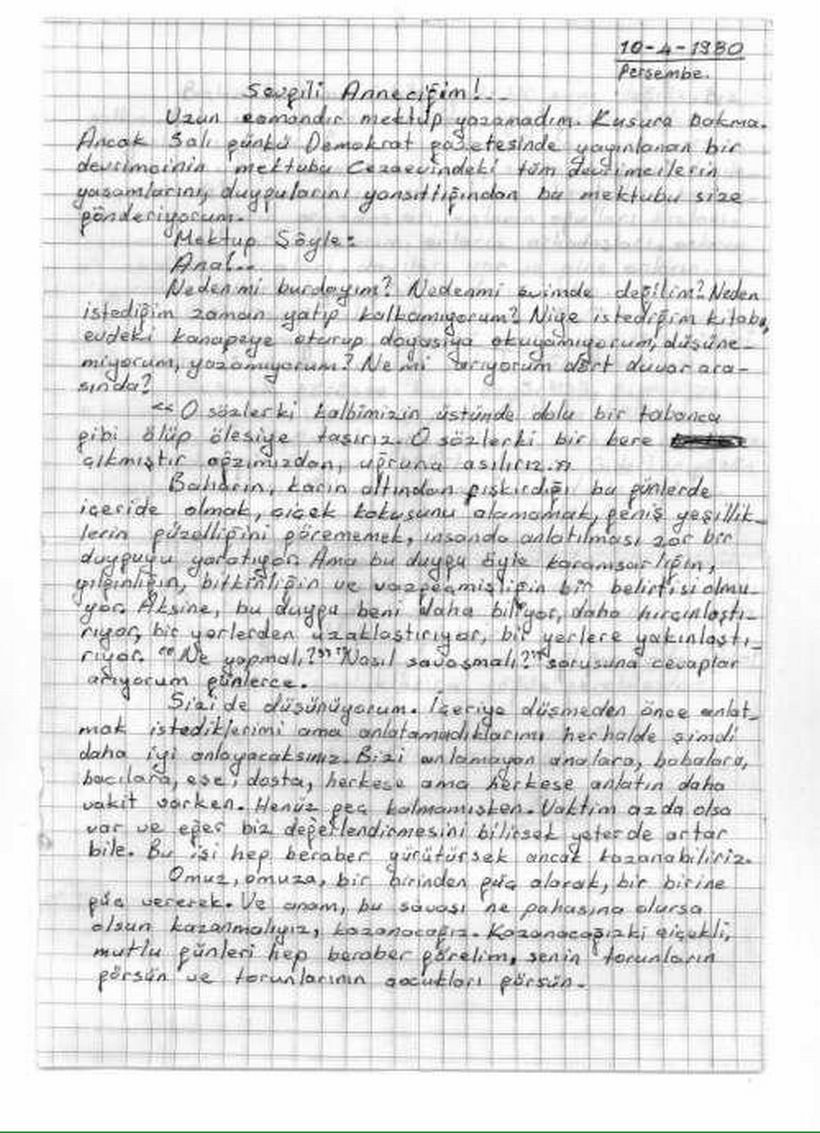 10-4-1980
Perşembe.
Sevgili Anneciğim!..
Uzun zamandır mektup yazamadım. Kusura bakma.
Ancak Salı günkü Demokrat gazetesinde yayınlanan bir
devrimcinin mektubu Cezaevindeki tüm devrimcilerin
yaşamlarını, duygularını yansıttığından bu mektubu size
gönderiyorum.
Mektup Şöyle:
Ana!..
Nedenmi burdayım? Nedenmi evimde değilim? Neden
istediğim zaman yatıp kalkamıyorum? Niye istediğim kitabı,
evdeki kanapeye oturup doyasıya okuyamıyorum, düşüne-
miyorum, yazamıyorum? Ne mi arıyorum dört duvar ara-
sında?
"O sözlerki kalbimizin üstünde dolu bir tabanca
gibi ölüp ölesiye taşırız. O sözlerki bir kere
çıkmıştır ağzımızdan, uğruna asılırız."
Baharın, karın altından fışkırdığı bu günlerde
içeride olmak, çiçek kokusunu alamamak, geniş yeşillik-
lerin güzelliğini görememek, insanda anlatılması zor bir
duyguyu yaratıyor. Ama bu duygu öyle karamsarlığın,
yılgınlığın, bitkinliğin ve vazgeçmişliğin bir belirtisi olmu-
yor. Aksine, bu duygu beni daha biliyor, daha hırçınlaştı-
rıyor, bir yerlerden uzaklaştırıyor, bir yerlere yakınlaştı-
rıyor. "Ne yapmalı?" "Nasıl savaşmalı?" sorusuna cevaplar
arıyorum günlerce.
Sizi de düşünüyorum. İçeriye düşmeden önce anlat-
mak istediklerimi ama anlatamadıklarımı herhalde şimdi
daha iyi anlayacaksınız. Bizi anlamayan analara, babalara,
bacılara, eşe, dosta, herkese ama herkese anlatın daha
vakit varken. Henüz geç kalmamışken. Vaktim azda olsa
var ve eğer biz değerlendirmesini bilirsek yeterde artar
bile. Bu işi hep beraber yürütürsek ancak kazanabiliriz.
Omuz, omuza, bir birinden güç alarak, bir birine
güç vererek. Ve anam, bu savaşı ne pahasına olursa
olsun kazanmalıyız, kazanacağız. Kazanacağızki çiçekli,
mutlu günleri hep beraber görelim, senin torunların
görsün ve torunlarının çocukları görsün.